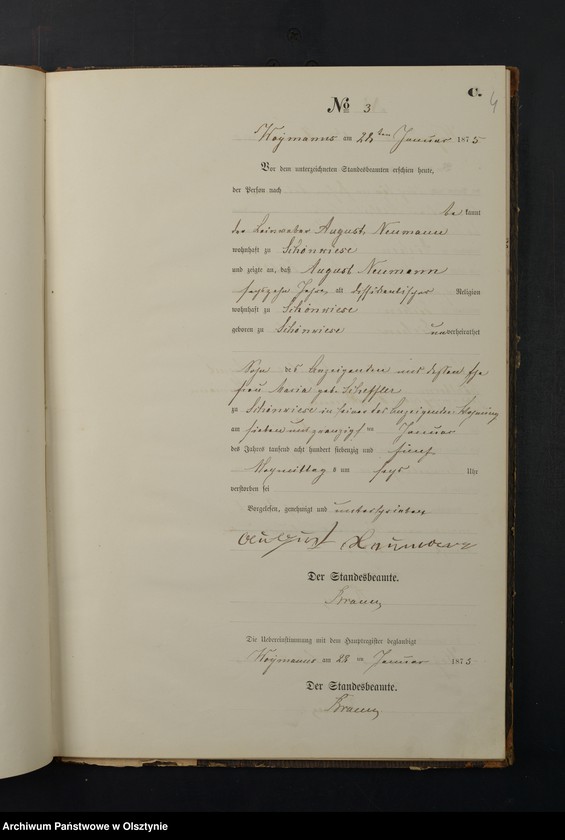 C.
4
No 3
Woymanns am 28ten Januar 1875
Vor dem unterzeichneten Standesbeamten erschien heute,
der Person nach
be kannt
der Leinweber August Neumann
wohnhaft zu Schönwiese
und zeigte an, daß August Neumann
sechszehn Jahre alt dissidentischer Religion
wohnhaft zu Schönwiese
geboren zu Schönwiese unverheirathet
Sohn des Anzeigenden und dessen Ehe
frau Maria geb. Scheffler
zu Schönwiese in seiner des Anzeigenden Wohnung
am sieben und zwanzigsten Januar
des Jahres tausend acht hundert siebenzig und fünf
Nachmittag s um sechs Uhr
verstorben sei
Vorgelesen, genehmigt und unterschrieben
August Neumann
Der Standesbeamte.
Die Uebereinstimmung mit dem Hauptregister beglaubigt
Woymanns am 28 ten Januar 1875
Der Standesbeamte.
Archiwum Państwowe w Olsztynie